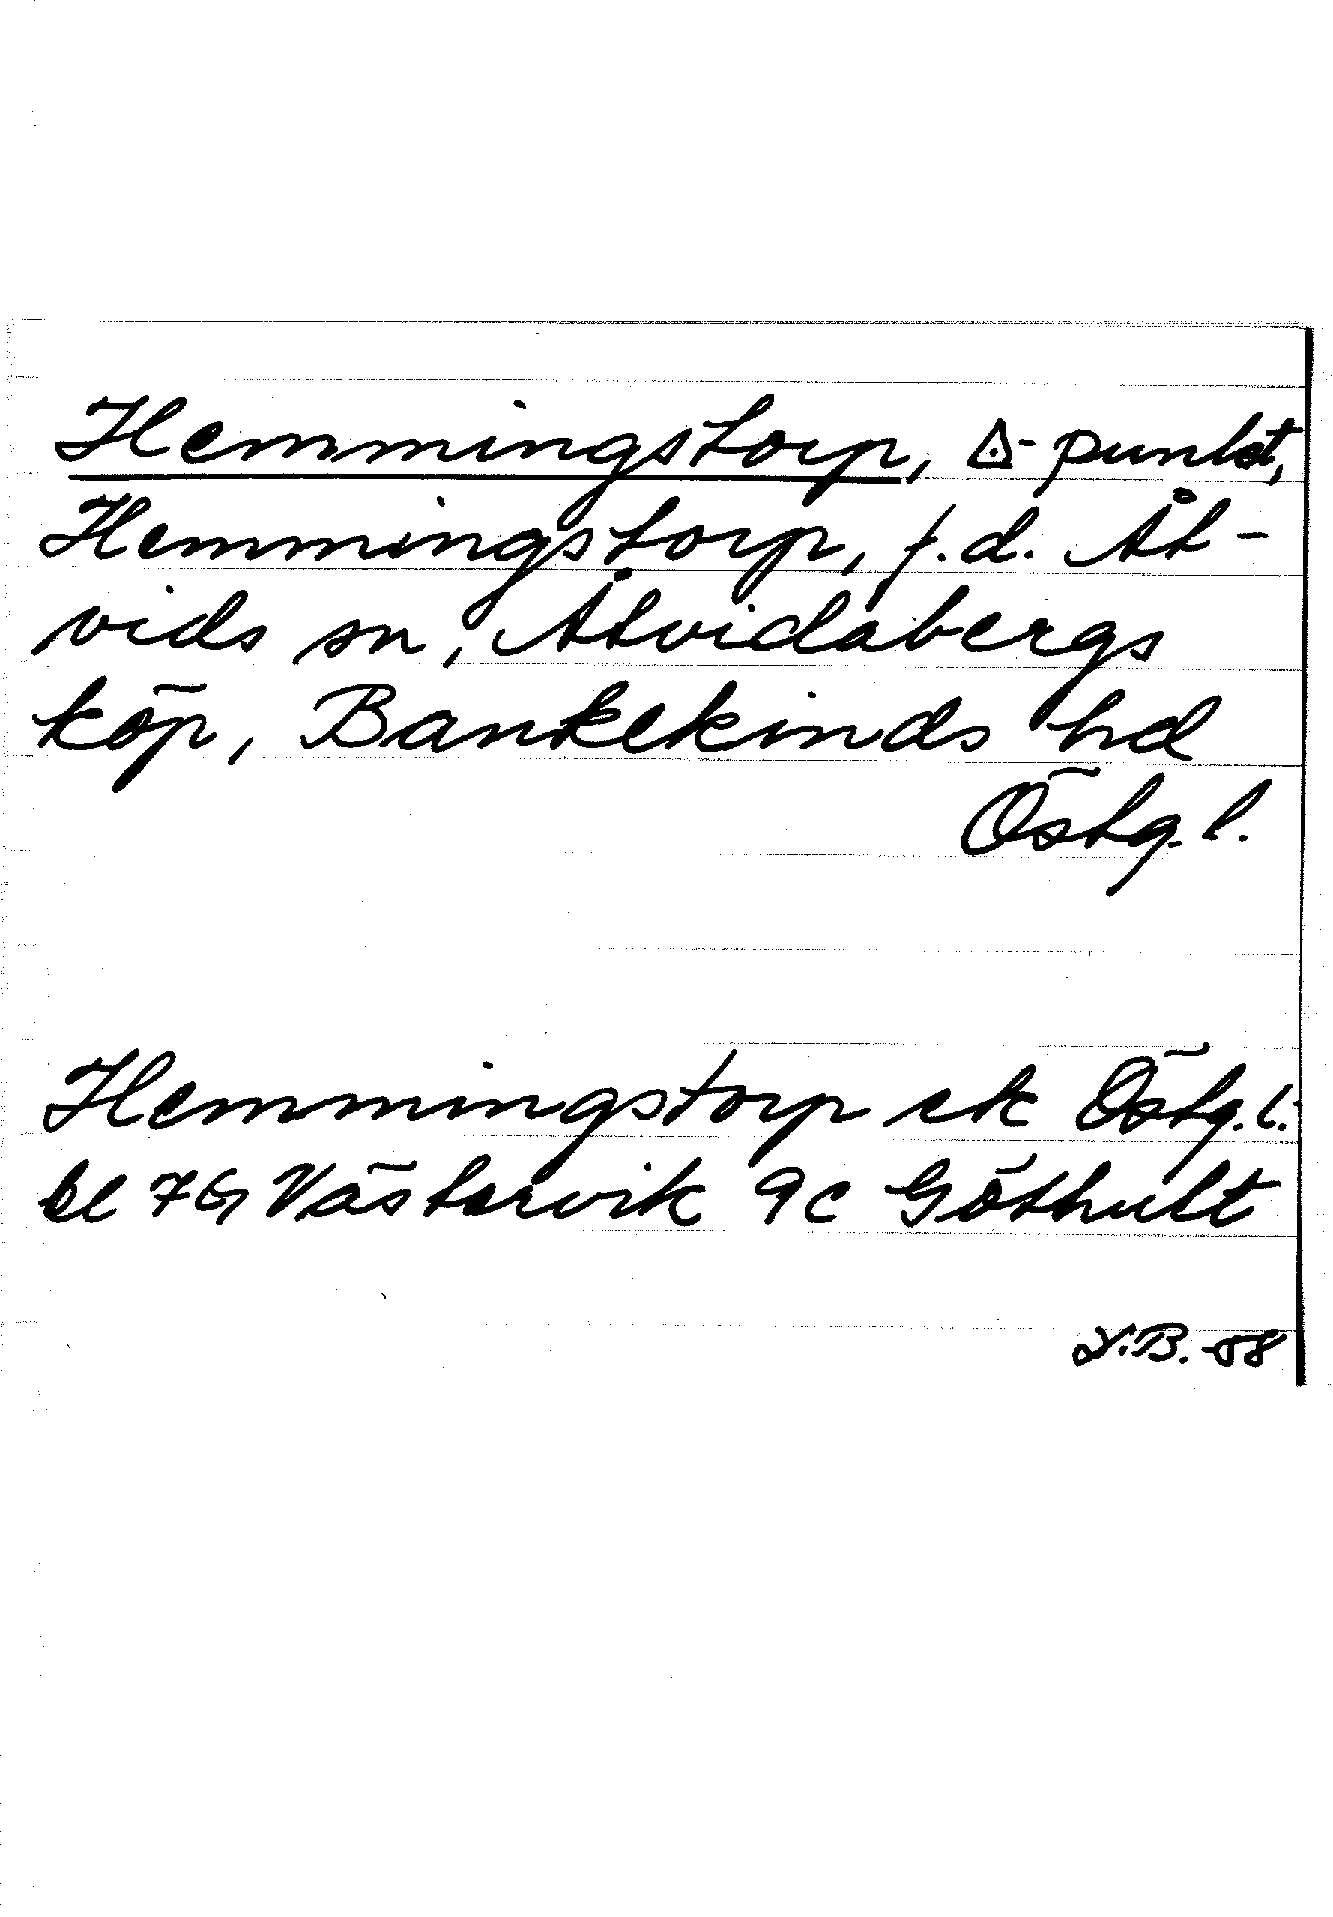 Hemmingstorp, ◬-punkt,
Hemmingstorp, f.d. Åt-
vids sn, Åtvidabergs
köp, Bankekinds hd
Östg. l.
Hemmingstorp ek Östg. l.
bl 7G Västervik 9c Göthult
B. -58